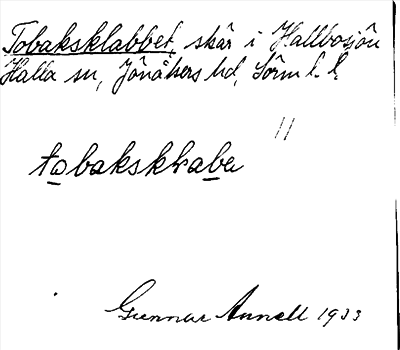 Tobaksklabbet, skär i Hallbosjön
Halla sn, Jönåkers hd, Sörm l. l.
tobakskḷabe
Gunnar Annell 1933